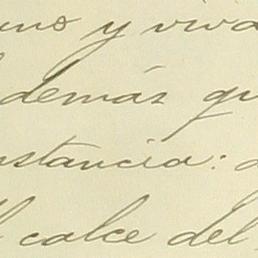 uno y viva
demás qu
nstancia:
al calce del